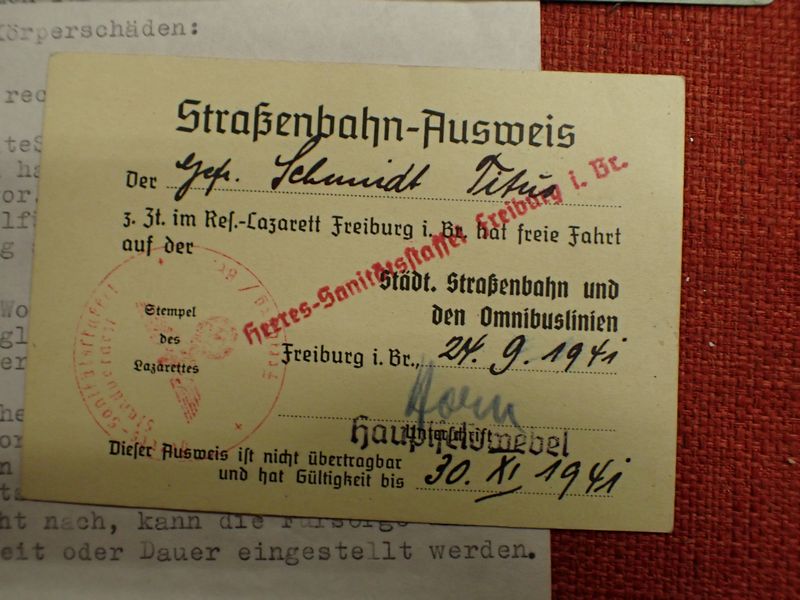 Körperschäden:
Straßenbahn-Ausweis
Der Gefr. Schmidt Titus
z. Zt. im Res.-Lazarett Freiburg i. Br. hat freie Fahrt
auf der
Städt. Straßenbahn und
den Omnibuslinien
Heeres-Sanitätsstaffel Freiburg i. Br.
Stempel
des
Lazarettes
Freiburg i. Br., 24. 9. 1941
Horn
Unterschrift
Hauptfeldwebel
Dieser Ausweis ist nicht übertragbar
und hat Gültigkeit bis 30. XI 1941
ht nach, kann die Fürsorge
eit oder Dauer eingestellt werden.